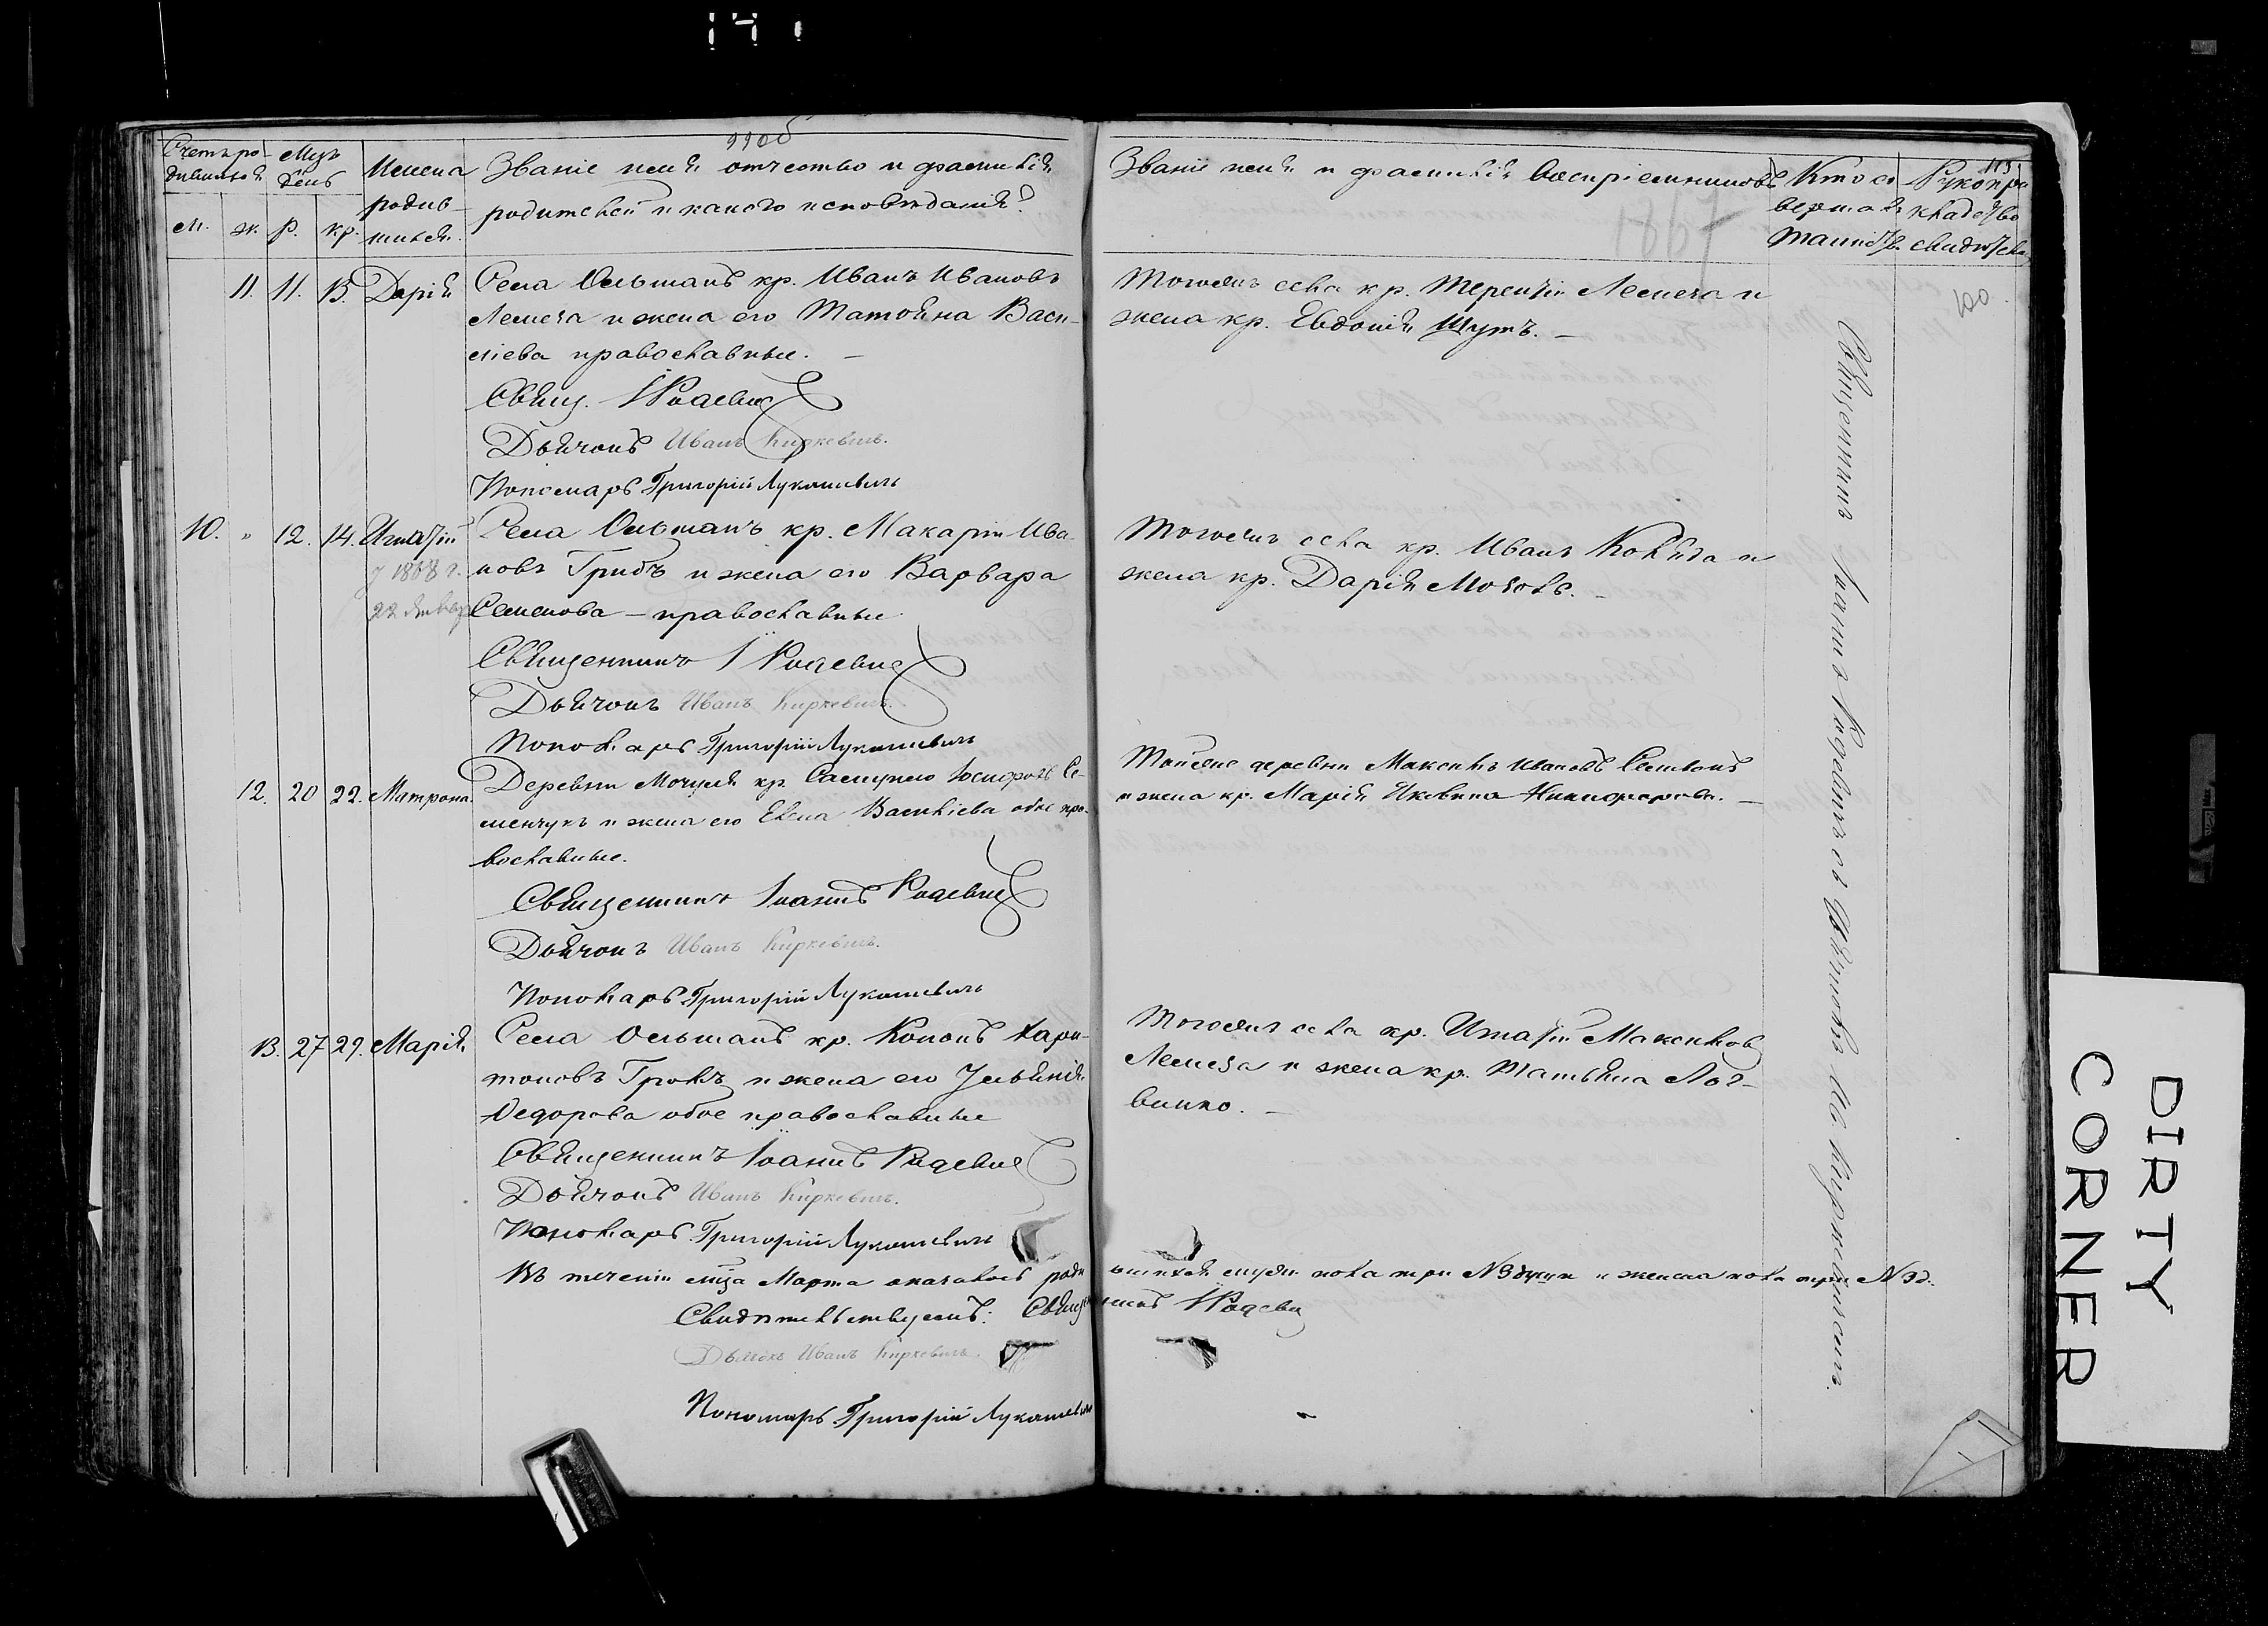 99об
Счетъ ро-
дившихся
Мцъ
день
Имена
родив-
шихся
м. ж. р. кр.
Званіе имя отчество и фамилія
родителей и какого исповѣданія?
Званіе имя и фамилія воспріемниковъ
Кто со
вершалъ
таинство
Рукопри
кладство
свидѣтел
113
1867
100.
11. 11. 13. Дарія
Села Ольшанъ кр. Иванъ Ивановъ
Лемеза и жена его Татьяна Васи-
лієва православные. —
Свящ. І Родевич
Дьячокъ Иванъ Киркевичъ.
Пономарь Григорій Лукашевичъ
Тогожъ села кр. Терентій Лемеза и
жена кр. Евдокія Шутъ. —
10. " 12. 14. Игнатій
1868 г.
22 Январ
Села Ольшанъ кр. Макарій Ива
новъ Грибъ и жена его Варвара
Семенова — православные
Священникъ І Родевич
Дьячокъ Иванъ Киркевичъ.
Пономарь Григорій Лукашевичъ
Тогожъ села кр. Иванъ и
жена кр. Дарія
12. 20 22. Матрона.
Деревни Мочуля кр. Самуилъ Іосифовъ Се-
менчукъ и жена его Елена Василієва обое пра-
вославные.
Священникъ Іоаннъ Родевич
Дьячокъ Иванъ Киркевичъ.
Пономарь Григорій Лукашевичъ
Тойже деревни Максимъ Ивановъ
и жена кр. Марія Яковлева Никифорова. —
13. 27 29. Марія.
Села Ольшанъ кр. Кононъ Хари-
тоновъ и жена его Ульянія
Ѳедорова обое православные
Священникъ Іоаннъ Родевич
Дьячокъ Иванъ Киркевичъ.
Пономарь Григорій Лукашевичъ
Тогожъ села кр. Игнатій Максимов
Лемеза и жена кр. Татьяна Лог-
винко. —
Въ теченіи мца Марта оказалось роди
вшихся мужи пола три №3 и женска пола три №3д.
Свидѣтельствуемъ: Священникъ І Родевич
Дьячокъ Иванъ Киркевичъ.
Пономарь Григорій Лукашевич
Священникъ Іоаннъ Родевичъ съ Дьячкомъ Ив. Киркевичемъ.
DIRTY
CORNER